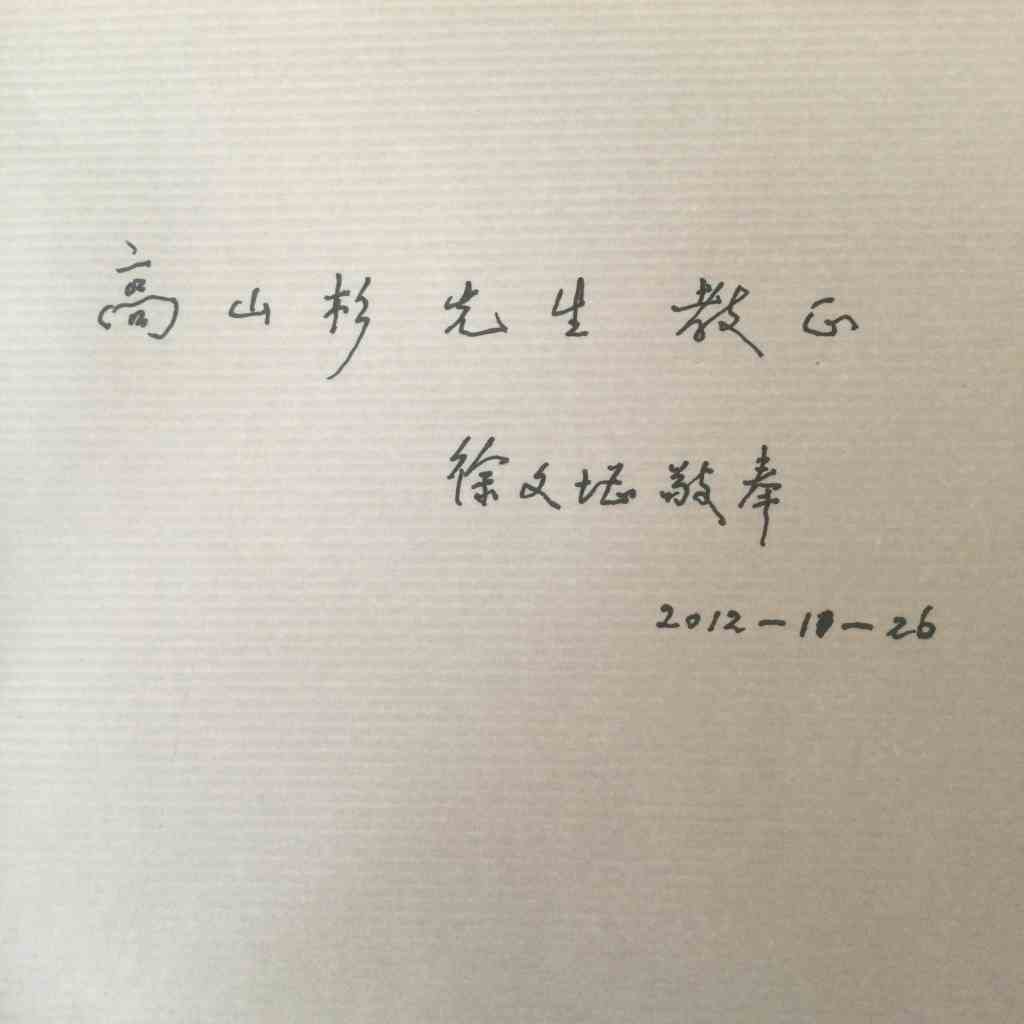 高山杉先生教正
徐文堪敬奉
2012-10-26